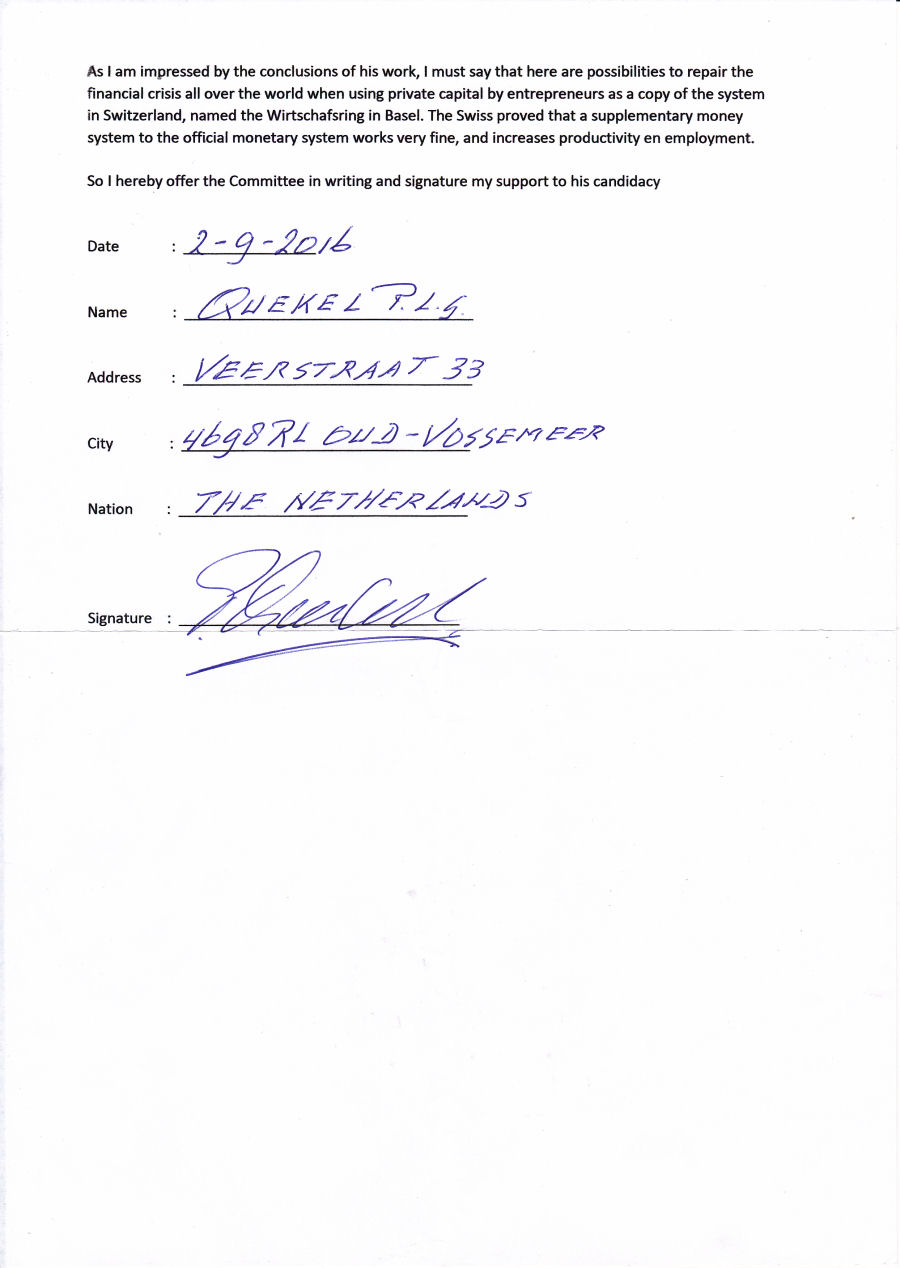 As I am impressed by the conclusions of his work, I must say that here are possibilities to repair the
financial crisis all over the world when using private capital by entrepreneurs as a copy of the system
in Switzerland, named the Wirtschafsring in Basel. The Swiss proved that a supplementary money
system to the official monetary system works very fine, and increases productivity en employment.
So I hereby offer the Committee in writing and signature my support to his candidacy
Date : 2-9-2016
Name : QUEKEL P.L.G.
Address : VEERSTRAAT 33
City : 4698RL OUD-VOSSEMEER
Nation : THE NETHERLANDS
Signature :